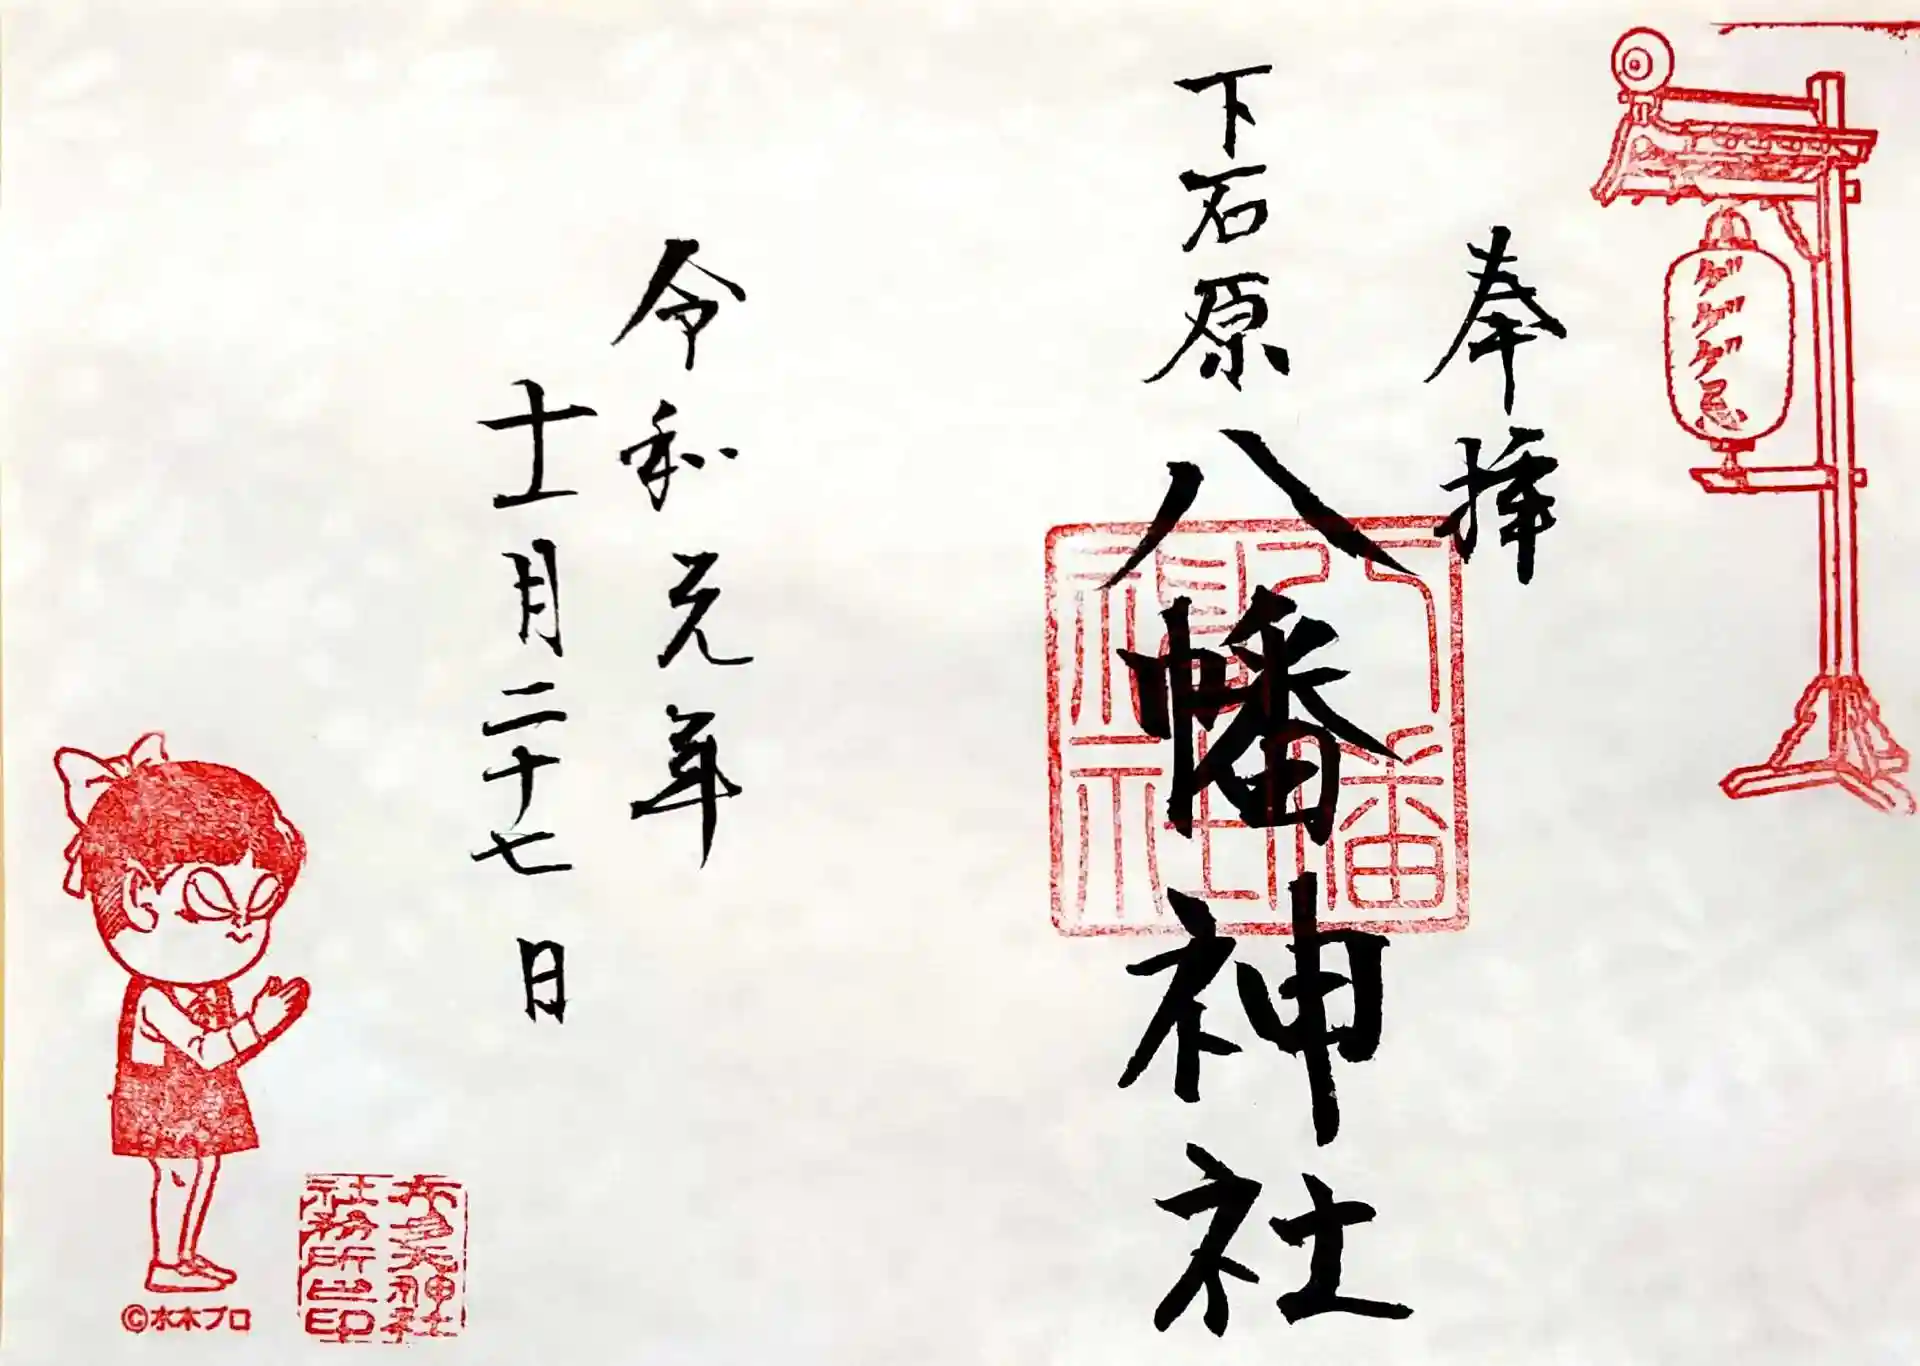 ゲゲゲ忌
奉拝
下石原
八幡神社
八幡
神社
令和元年
十一月二十七日
布多天神社
社務所之印
©水木プロ